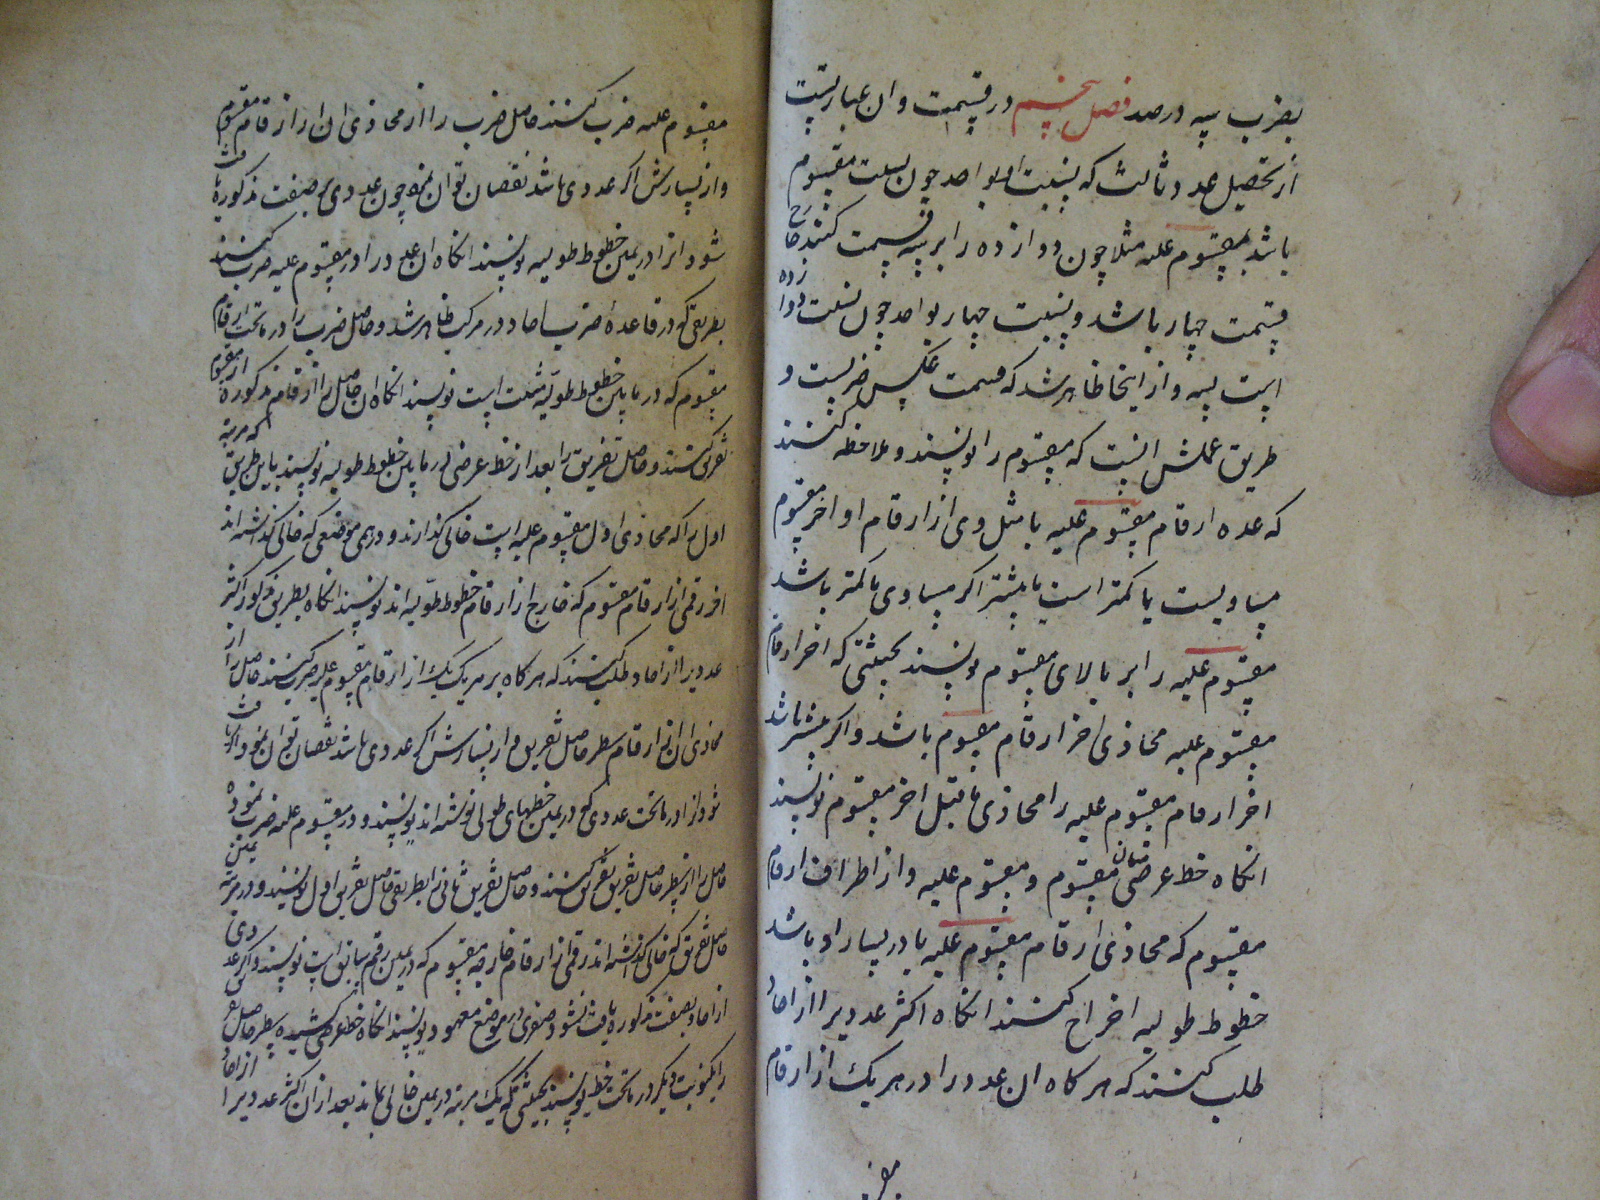 بضرب سه درصد فصل پنجم در قسمت وان عبارتست
از تحصیل عدد ثالث که نسبت او بواحد چون نسبت مقسوم
باشد بمقسوم علیه مثلا چون دوازده را بر سه قسمت کنند خارج
قسمت چهار باشد و نسبت چهار بواحد چون نسبت دوازده
است بسه و از اینجا ظاهر شد که قسمت عکس ضربست و
طریق عملش انست که مقسوم را نویسند و ملاحظه کنند
که عده ارقام مقسوم علیه با مثل وی از ارقام اواخر مقسوم
مساویست یا کمتر است یا بیشتر اگر مساوی یا کمتر باشد
مقسوم علیه را بر بالای مقسوم نویسند بحیثیتی که اخر ارقام
مقسوم علیه محاذی اخر ارقام مقسوم باشد و اگر بیشتر باشد
اخر ارقام مقسوم علیه را محاذی ماقبل اخر مقسوم نویسند
انکاه خط عرضی میان مقسوم و مقسوم علیه و از اطراف ارقام
مقسوم که محاذی ارقام مقسوم علیه یا در یسار او باشد
خطوط طولیه اخراج کنند انکاه اکثر عددیرا از احاد
طلب کنند که هر کاه ان عدد را در هر یک از ارقام
مقسوم علیه ضرب کنند حاصل ضرب را از محاذی ان از ارقام مقسوم
و از یسارش اگر عددی باشد نقصان توان نمود چون عددی بر صفت مذکوره یافت
شود انرا در یمین خطوط طولیه نویسند انکاه ان عدد را در مقسوم علیه ضرب کنند
بطریقی که در قاعده ضرب احاد در مرکب ظاهر شد و حاصل ضرب را در ماتحت ارقام
مقسوم که در مابین خطوط طولیه مثبت است نویسند انکاه ان حاصل را از ارقام مذکوره از مقسوم
تفریق کنند و حاصل تفریق را بعد از خط عرضی در مابین خطوط طولیه نویسند باین طریق که مرتبه
اول را که محاذی اول مقسوم علیه است خالی گذارند و در موضعی که خالی گذاشته اند
اخر رقمی از ارقام مقسوم که خارج از ارقام خطوط طولیه اند نویسند انکاه بطریق مذکور اکثر
عددیرا از احاد طلب کنند که هر کاه بر هر یک یک از ارقام مقسوم علیه ضرب کنند حاصل را از
محاذی ان از ارقام سطر حاصل تفریق و از یسارش اگر عددی باشد نقصان توان نمود و اگر یافت
شود انرا در ماتحت عددی که در یمین خطهای طولی نوشته اند نویسند و در مقسوم علیه ضرب نموده
حاصل را از سطر حاصل تفریق تفریق کنند و حاصل تفریق ثانی را بطریق حاصل تفریق اول نویسند و در مرتبه یمین
حاصل تفریق که خالی گذاشته اند رقمی از ارقام خارجه مقسوم که در یمین رقم سابق است نویسند و اگر عددی
از احاد بصفت مذکوره یافت نشود صفری در موضع معهود نویسند انکاه خط عرضی کشیده سطر حاصل تفریق
را یکنوبت دیگر در تحت خط نویسند بحیثیتی که یک مرتبه در یمین خالی بماند بعد از ان اکثر عددیرا از احاد